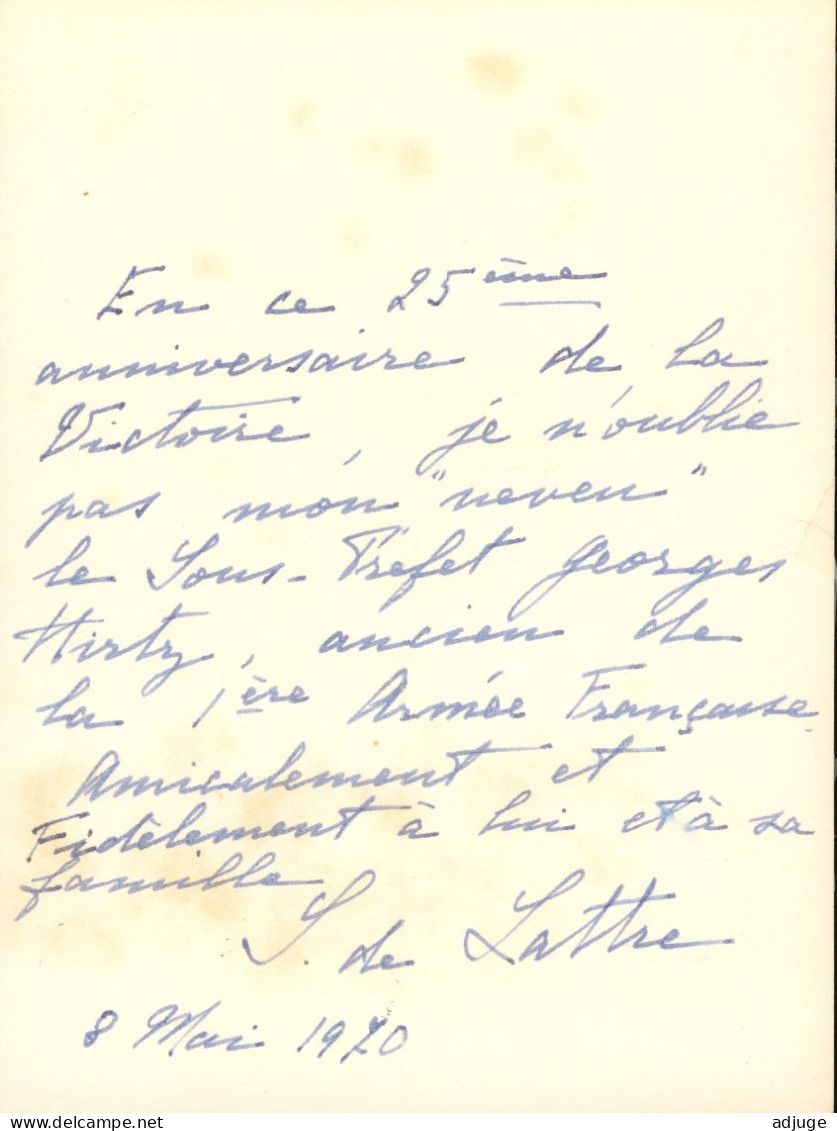 En ce 25ème
anniversaire de la
Victoire, je n'oublie
pas mon "neveu"
le Sous-Préfet Georges
Hirtz, ancien de
la 1ère Armée Française
Amicalement et
Fidèlement à lui et à sa
famille
S. de Lattre
8 Mai 1970
www.delcampe.net
adjuge